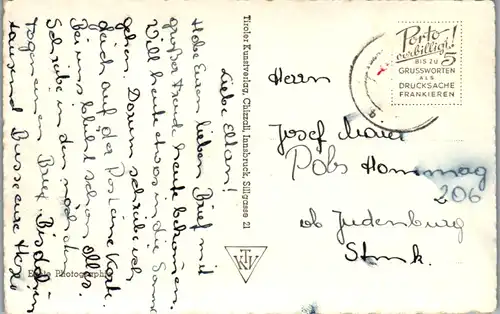 Liebe Eltern!
Habe Euren lieben Brief mit
großer Freude heute bekommen.
Will heute etwas in die Sonne
gehen. Darum schreibe ich
gleich auf der Post eine Karte.
Bei uns blüht schon alles.
Schreibe in den nächsten
Tagen einen Brief. Bis dahin
tausend Bussi eure
Tiroler Kunstverlag, Chizzali, Innsbruck, Sillgasse 21
TKV
Echte Photographie
Porto
verbilligt!
BIS ZU 5
GRUSSWORTEN
ALS
DRUCKSACHE
FRANKIEREN
Herrn
Josef Maier
Pöls
206
ob Judenburg
Stmk.